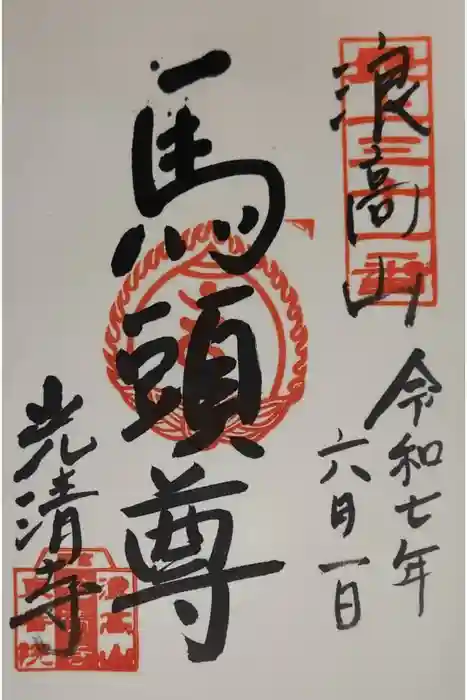 浪高山
令和七年
六月一日
馬頭尊
光清寺